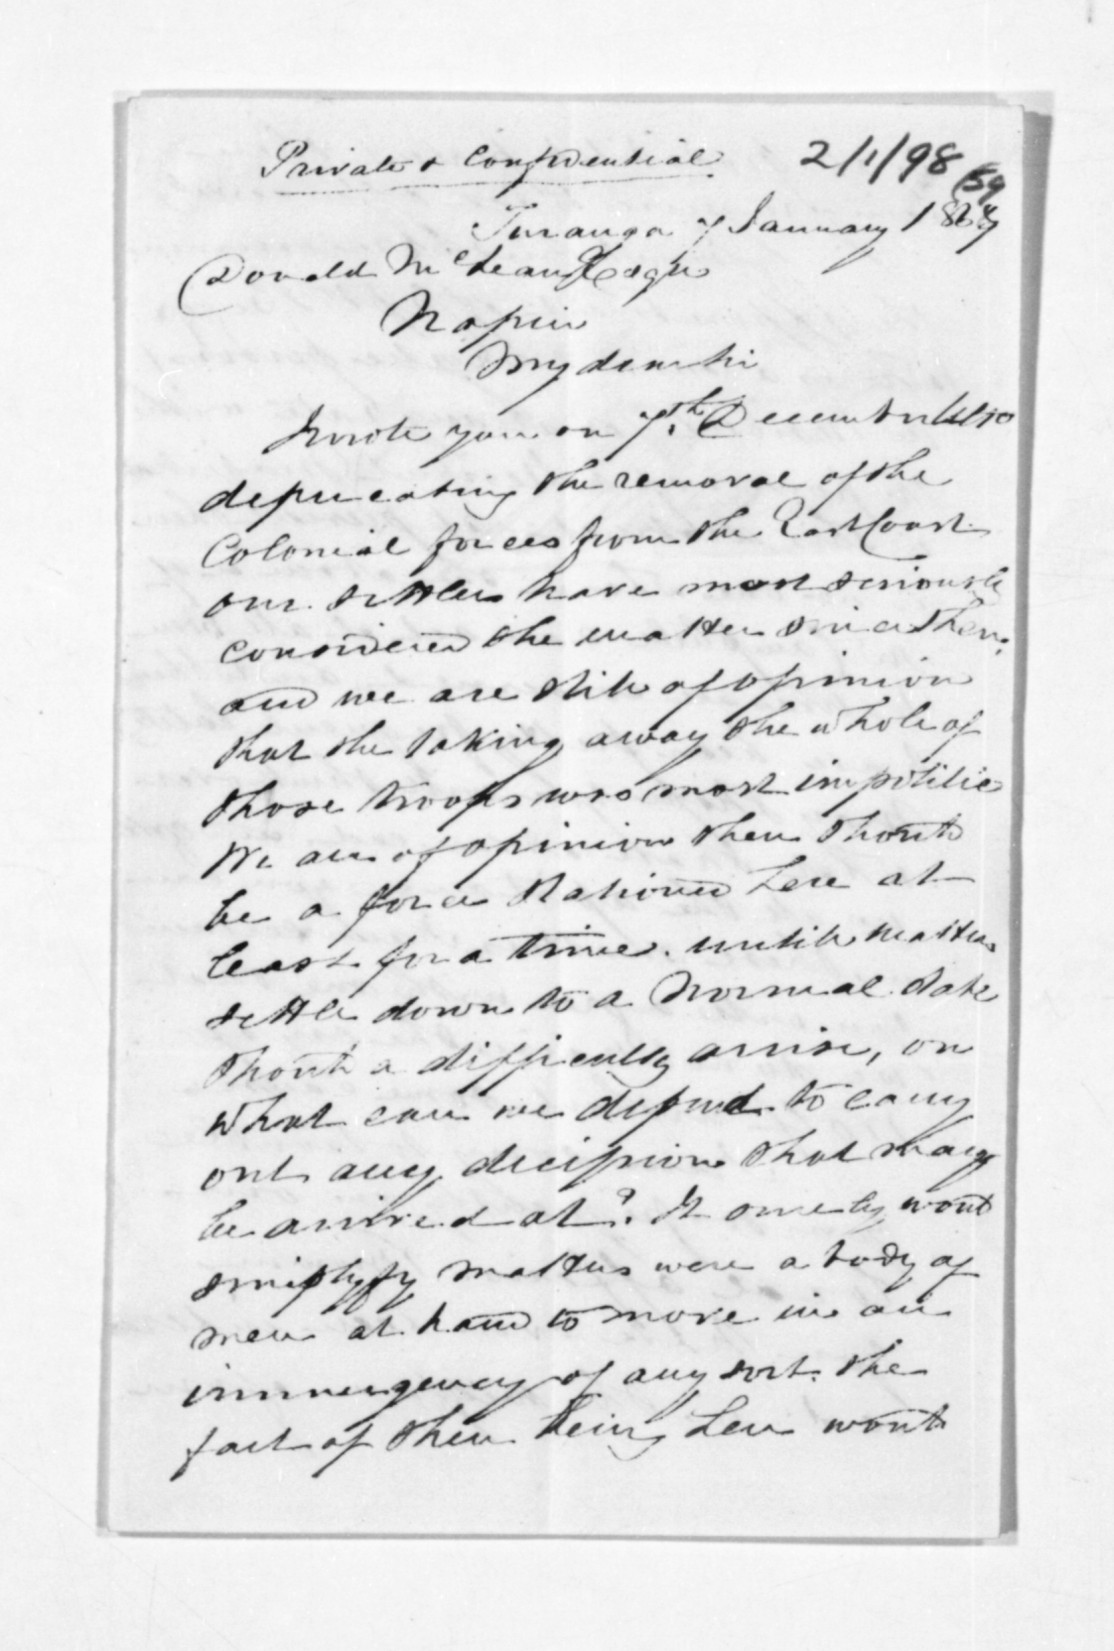 Private & Confidential
2/1/98
69
Turanga 7 January 1867
Donald McLean Esqre
Napier
My dear Sir
I wrote you on 7th. December ulto
deprecating the removal of the
Colonial forces from the East Coast
our settlers have most seriously
considered the matter since then,
and we are still of opinion
that the taking away the whole of
those troops was most impolitic
We are of opinion there should
be a force stationed here at
least for a time. until matters
settle down to a normal state
should a difficulty arrise, on
what can we depend to carry
out any decission that may
be arrived at? It surely would
simplyfy matters were a body of
men at hand to move in an
immergency of any sort. the
fact of their being here would